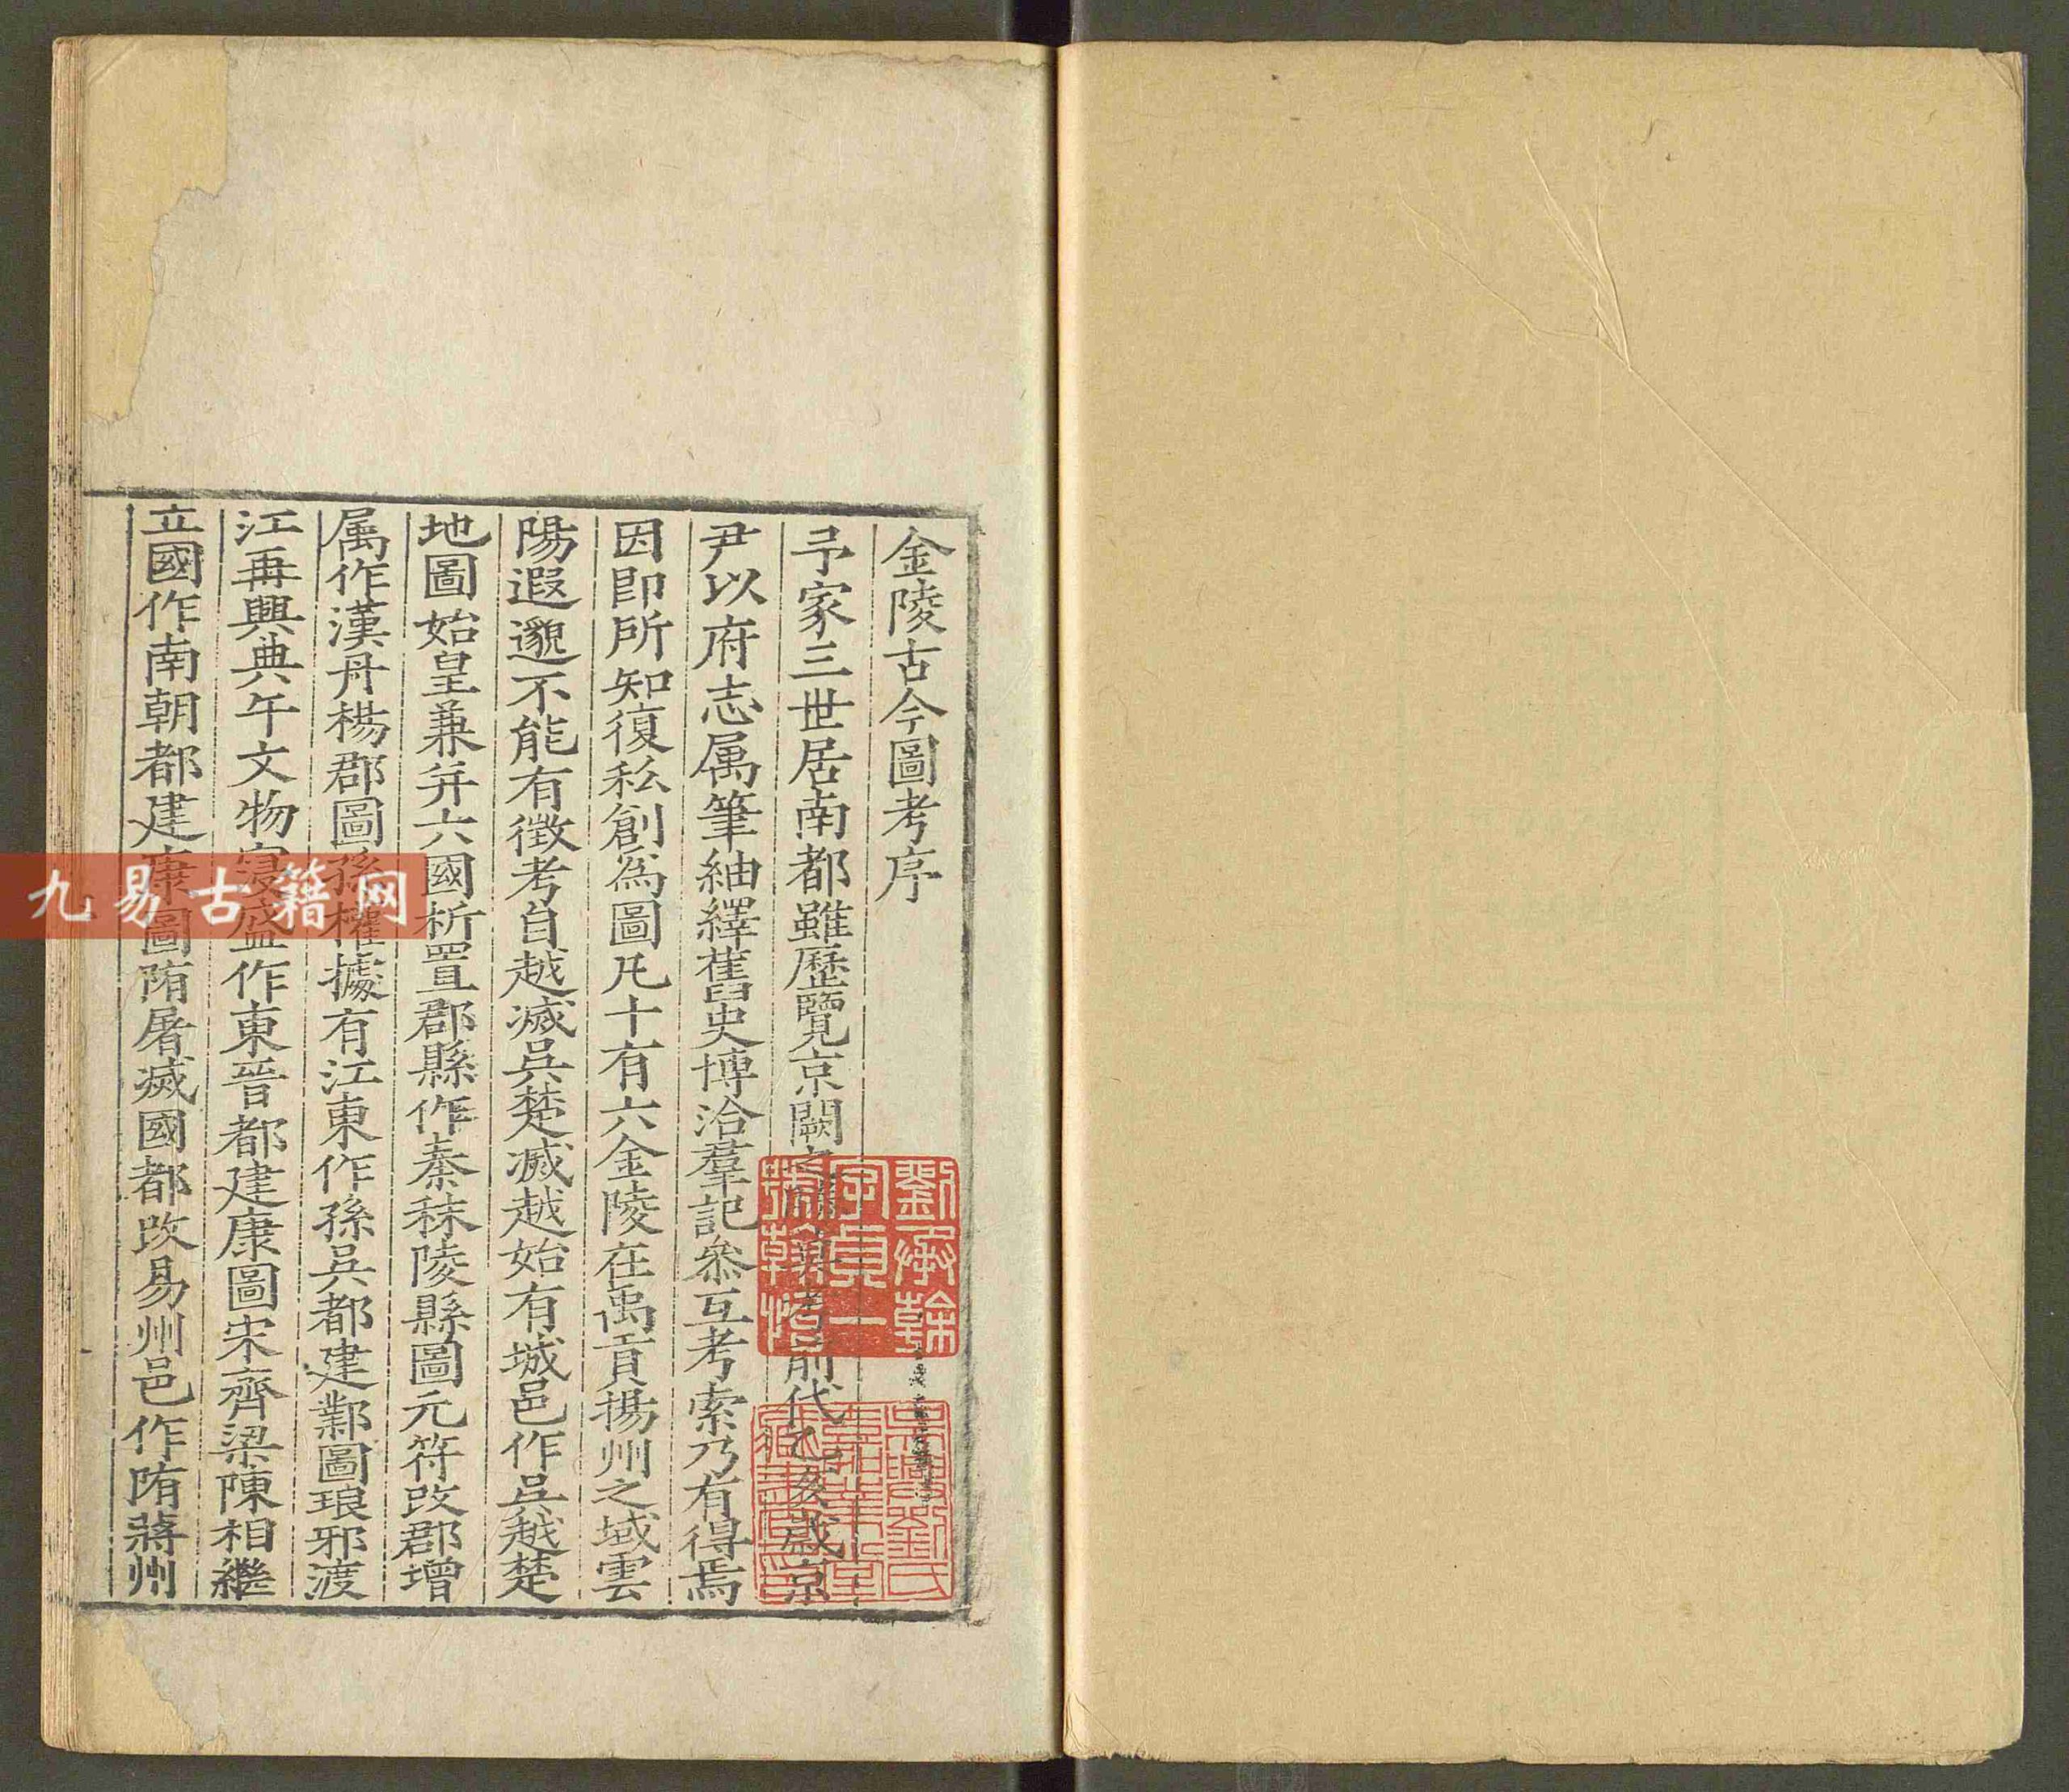 金陵古今圖考序
予家三世居南都雖歷覽京闕之勝
前代乙亥歲京
尹以府志属筆紬繹舊史博洽羣記叅互考索乃有得焉
因即所知復私創為圖凡十有六金陵在禹貢揚州之域雲
陽遐邈不能有徴考自越滅吳楚滅越始有城邑作吳越楚
地圖始皇兼并六國析置郡縣作秦秣陵縣圖元符改郡增
属作漢丹楊郡圖孫權據有江東作孫吳都建鄴圖琅邪渡
江再興典午文物寖盛作東晉都建康圖宋齊梁陳相繼
立國作南朝都建康圖隋屠滅國都改易州邑作隋蔣州
劉承幹
字貞一
號翰怡
吳興劉氏
嘉業堂
藏書印
九易古籍网